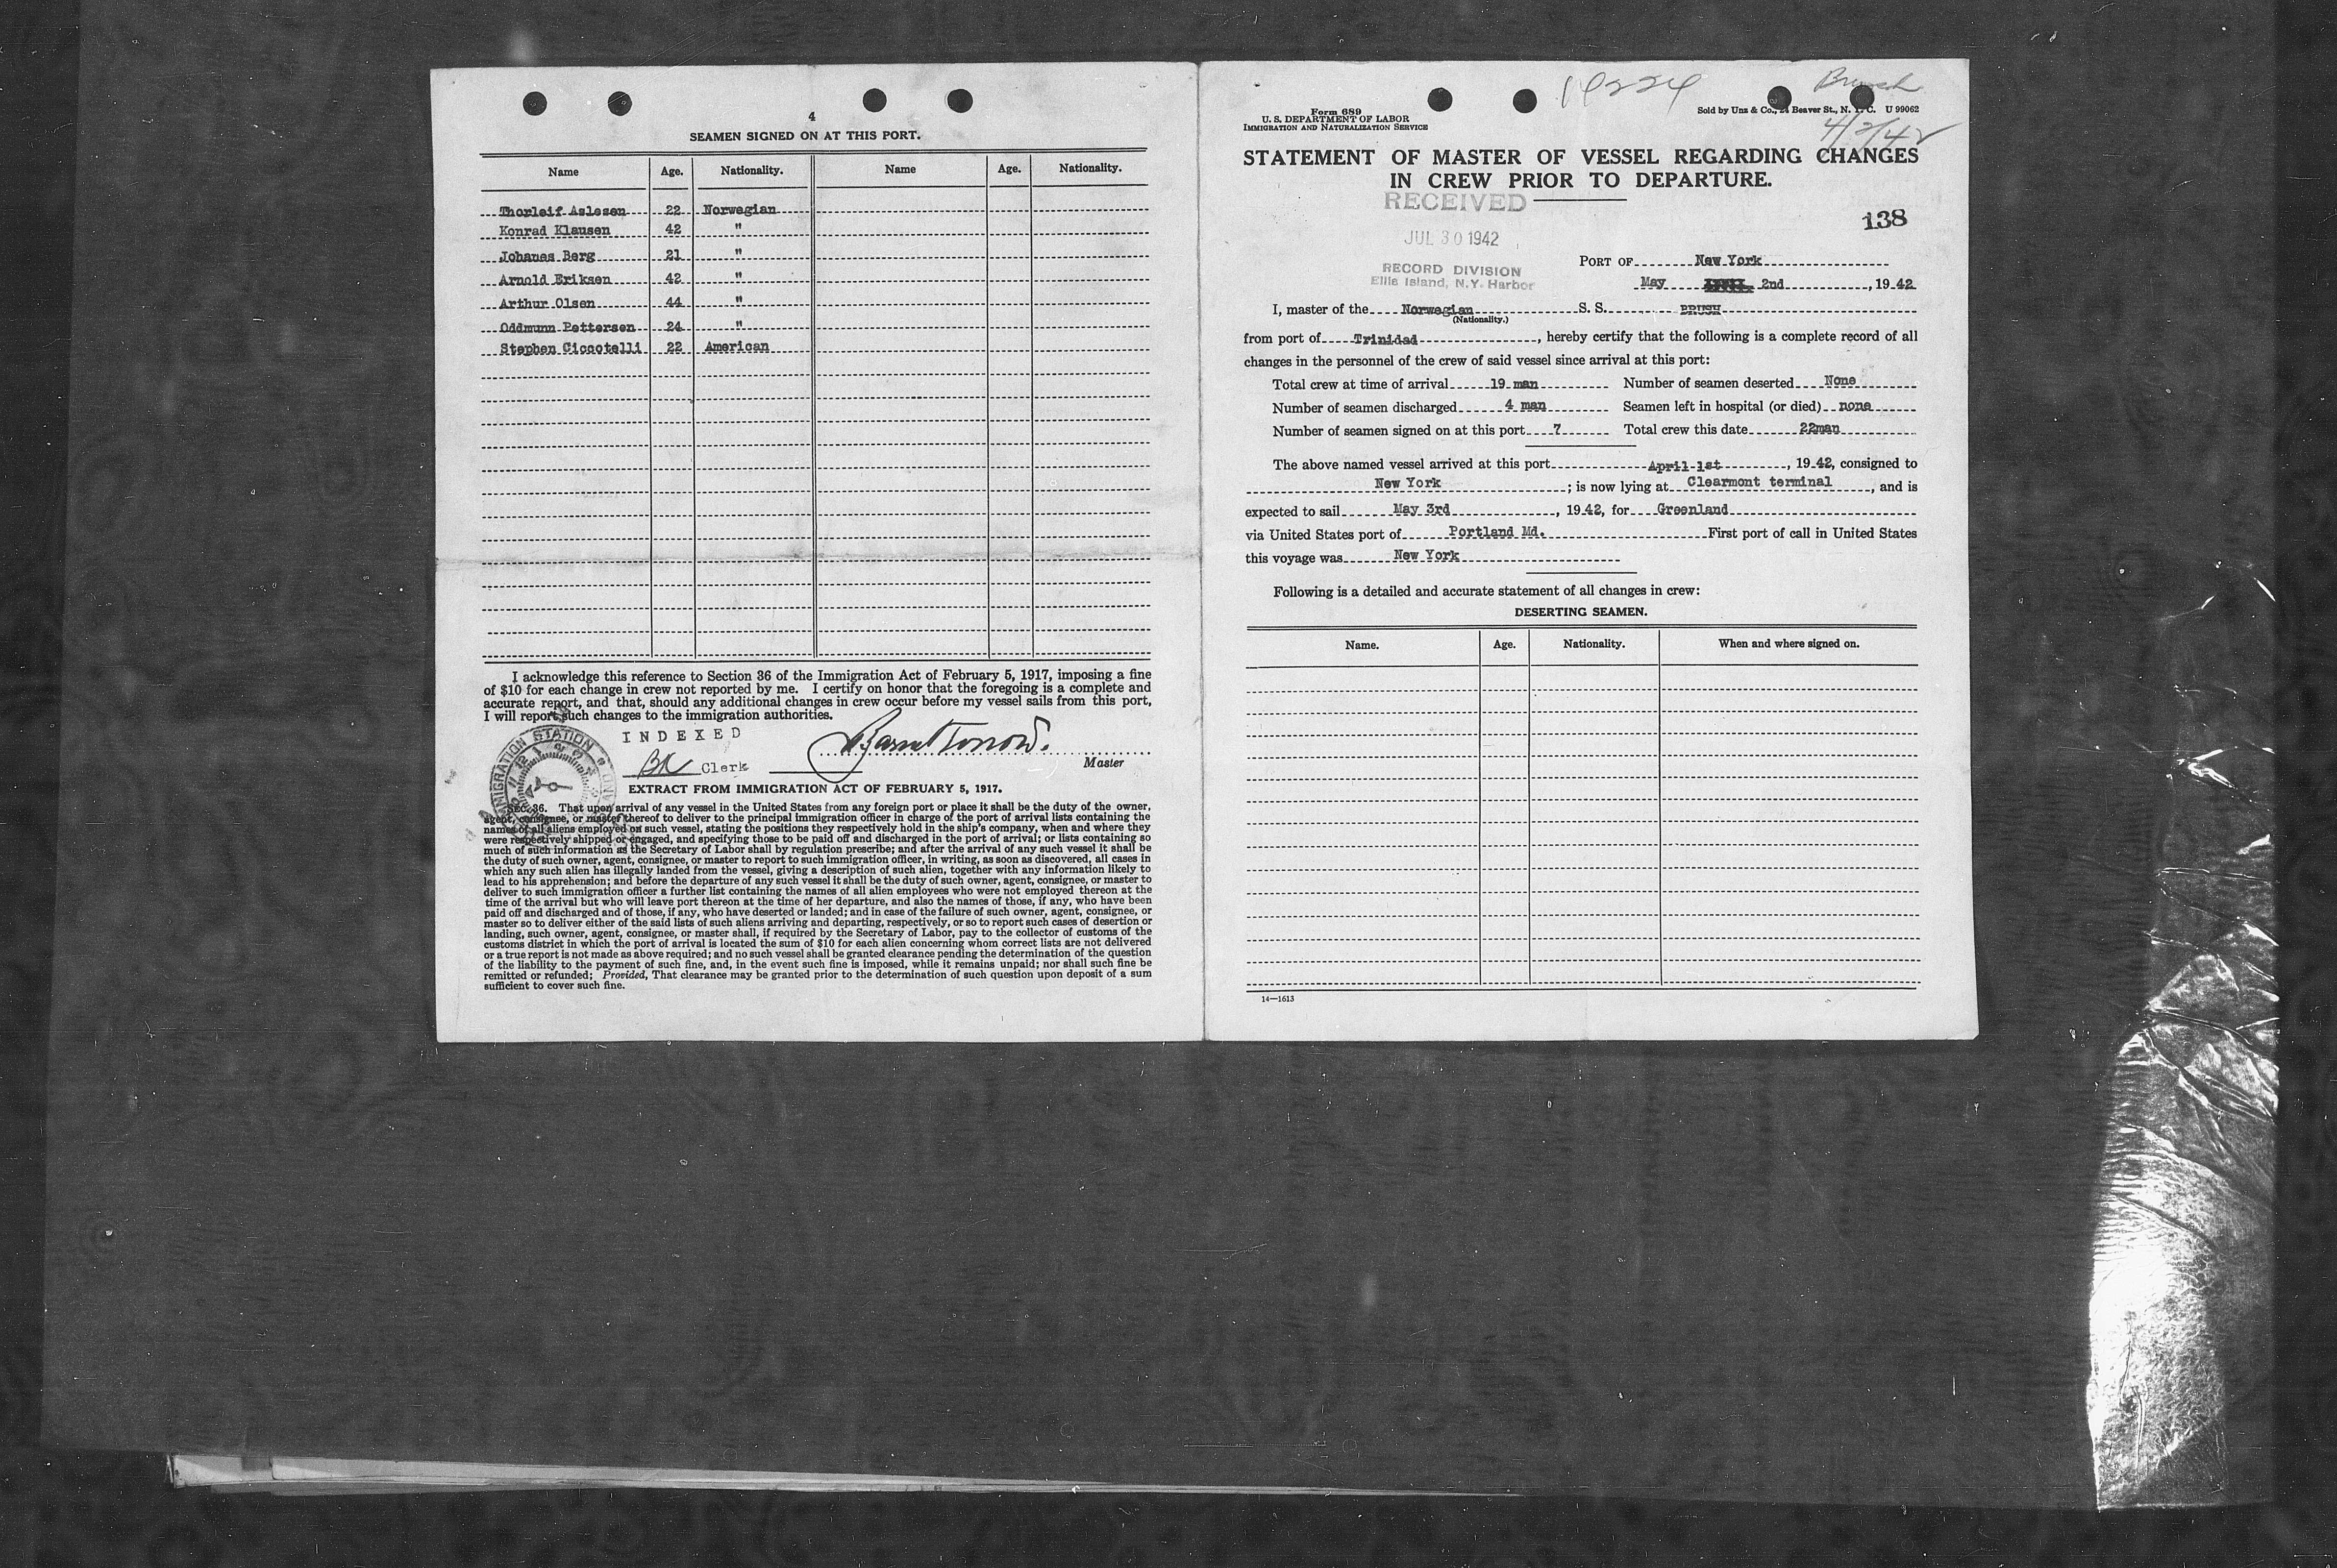 4
SEAMEN SIGNED ON AT THIS PORT.
Name Age. Nationality. Name Age. Nationality.
Thorleif Aslesen 22 Norwegian
Konrad Klausen 42 "
Johanes Berg 21 "
Arnold Eriksen 42 "
Arthur Olsen 44 "
Oddmunn Pettersen 24 "
Stephen Ciccotelli 22 American
I acknowledge this reference to Section 36 of the Immigration Act of February 5, 1917, imposing a fine
of $10 for each change in crew not reported by me. I certify on honor that the foregoing is a complete and
accurate report, and that, should any additional changes in crew occur before my vessel sails from this port,
I will report such changes to the immigration authorities.
INDEXED
BK Clerk
Master
IMMIGRATION STATION
EXTRACT FROM IMMIGRATION ACT OF FEBRUARY 5, 1917.
SEC. 36. That upon arrival of any vessel in the United States from any foreign port or place it shall be the duty of the owner,
agent, consignee, or master thereof to deliver to the principal immigration officer in charge of the port of arrival lists containing the
names of all aliens employed on such vessel, stating the positions they respectively hold in the ship's company, when and where they
were respectively shipped or engaged, and specifying those to be paid off and discharged in the port of arrival; or lists containing so
much of such information as the Secretary of Labor shall by regulation prescribe; and after the arrival of any such vessel it shall be
the duty of such owner, agent, consignee, or master to report to such immigration officer, in writing, as soon as discovered, all cases in
which any such alien has illegally landed from the vessel, giving a description of such alien, together with any information likely to
lead to his apprehension; and before the departure of any such vessel it shall be the duty of such owner, agent, consignee, or master to
deliver to such immigration officer a further list containing the names of all alien employees who were not employed thereon at the
time of the arrival but who will leave port thereon at the time of her departure, and also the names of those, if any, who have been
paid off and discharged and of those, if any, who have deserted or landed; and in case of the failure of such owner, agent, consignee, or
master so to deliver either of the said lists of such aliens arriving and departing, respectively, or so to report such cases of desertion or
landing, such owner, agent, consignee, or master shall, if required by the Secretary of Labor, pay to the collector of customs of the
customs district in which the port of arrival is located the sum of $10 for each alien concerning whom correct lists are not delivered
or a true report is not made as above required; and no such vessel shall be granted clearance pending the determination of the question
of the liability to the payment of such fine, and, in the event such fine is imposed, while it remains unpaid; nor shall such fine be
remitted or refunded; Provided, That clearance may be granted prior to the determination of such question upon deposit of a sum
sufficient to cover such fine.
Form 689
U. S. DEPARTMENT OF LABOR
IMMIGRATION AND NATURALIZATION SERVICE
Sold by Unz & Co., 24 Beaver St., N. Y. C. U 99062
4/2/42
STATEMENT OF MASTER OF VESSEL REGARDING CHANGES
IN CREW PRIOR TO DEPARTURE.
RECEIVED
JUL 30 1942
RECORD DIVISION
Ellis Island, N.Y. Harbor
138
PORT OF New York
May 2nd, 1942
I, master of the Norwegian S. S. BRUSH
(Nationality.)
from port of Trinidad, hereby certify that the following is a complete record of all
changes in the personnel of the crew of said vessel since arrival at this port:
Total crew at time of arrival 19 man Number of seamen deserted None
Number of seamen discharged 4 man Seamen left in hospital (or died) none
Number of seamen signed on at this port 7 Total crew this date 22man
The above named vessel arrived at this port April 1st, 1942, consigned to
New York; is now lying at Clearmont terminal, and is
expected to sail May 3rd, 1942, for Greenland
via United States port of Portland Md. First port of call in United States
this voyage was New York
Following is a detailed and accurate statement of all changes in crew:
DESERTING SEAMEN.
Name. Age. Nationality. When and where signed on.
14—1613